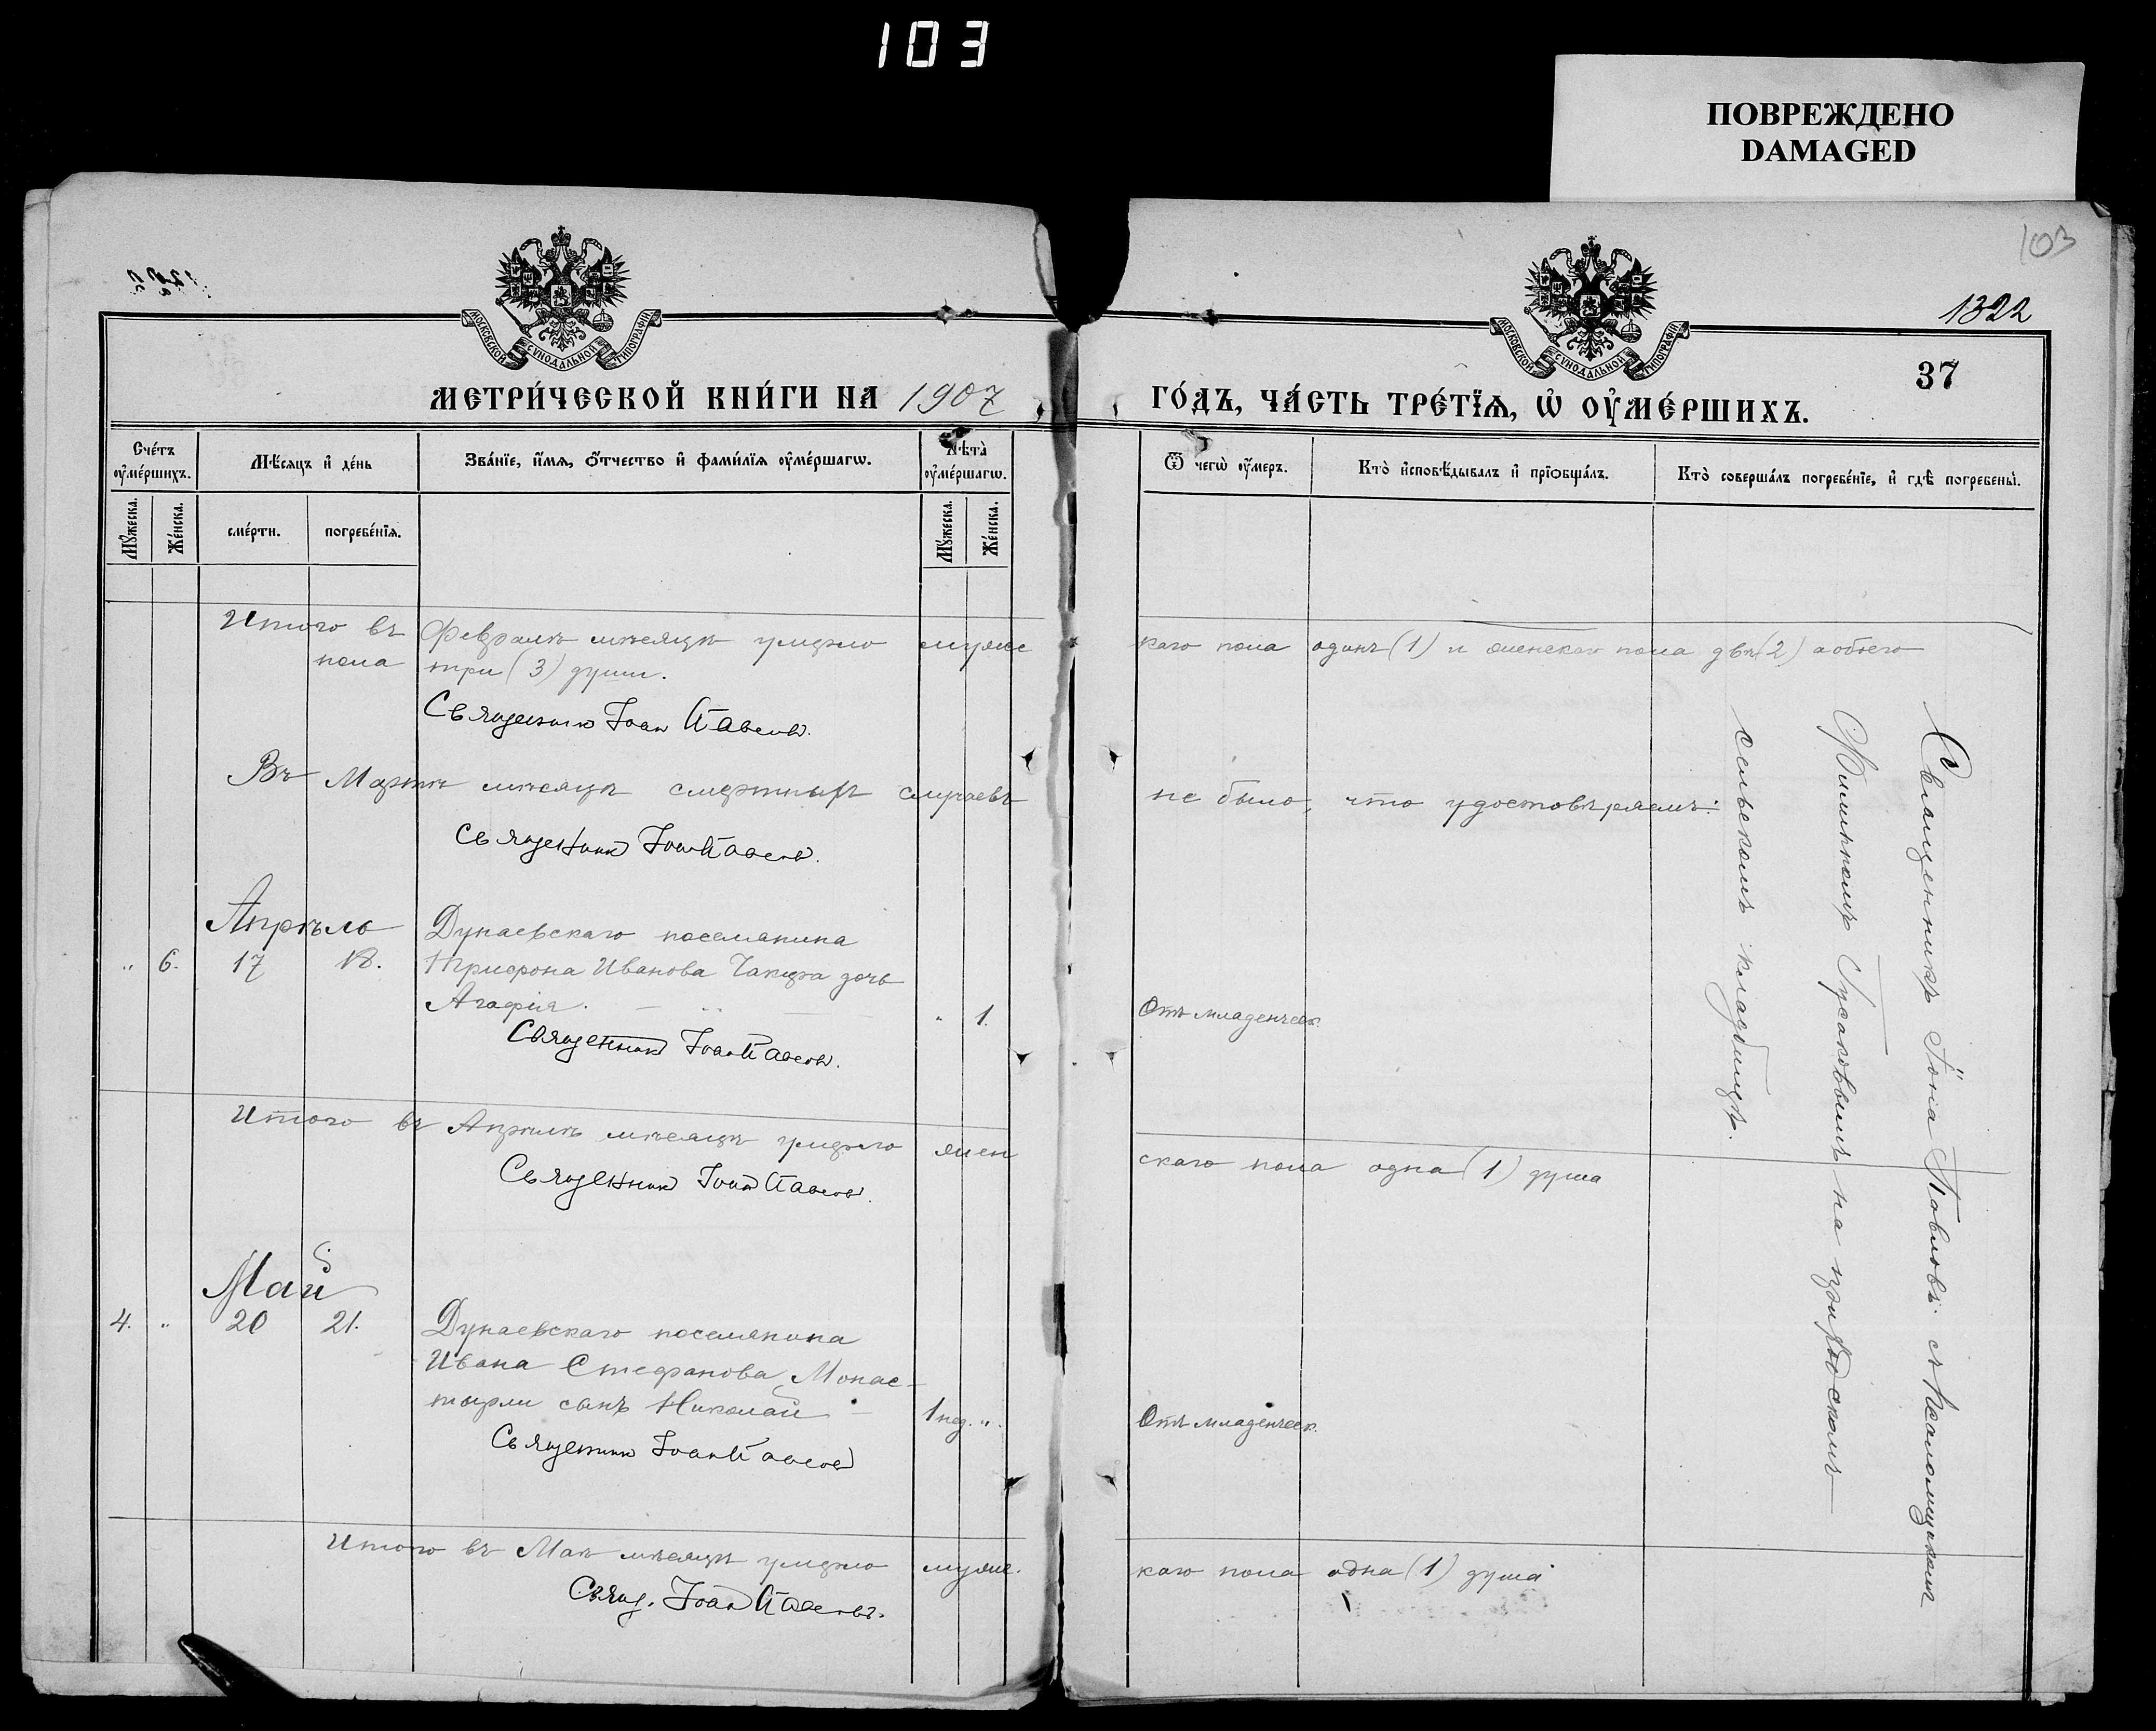 103
ПОВРЕЖДЕНО
DAMAGED
103
1322
37
МОСКОВСКОЙ СУНОДАЛЬНОЙ ТИПОГРАФІИ
МОСКОВСКОЙ СУНОДАЛЬНОЙ ТИПОГРАФІИ
МЕТРИ́ЧЕСКОЙ КНИ́ГИ НА 1907
ГО́ДЪ, ЧА́СТЬ ТРЕ́ТЇѦ, Ѡ҆ ОУ҆МЕ́РШИХЪ.
Сче́тъ оу҆ме́ршихъ.
Мѣ́сяцъ и҆ де́нь
Зва́нїе, и҆́мѧ, ѻ҆́тчество и҆ фами́лїѧ оу҆ме́ршагѡ.
Лѣ́та̀ оу҆ме́ршагѡ.
Ѿ чегѡ̀ оу҆́меръ.
Кто̀ и҆сповѣ́дывалъ и҆ прїѡбща́лъ.
Кто̀ соверша́лъ погребе́нїе, и҆ гдѣ̀ погребены̀.
Мꙋ́жеска.
Же́нска.
сме́рти.
погребе́нїѧ.
Мꙋ́жеска.
Же́нска.
Итого въ Февралѣ мѣсяцѣ умерло мужс
каго пола одинъ (1) и женскаго пола двѣ (2) а обоего
пола три (3) души.
Священникъ Іоан Павловъ.
Въ Мартѣ мѣсяцѣ смертныхъ случаевъ
не было, что удостовѣряемъ:
Священникъ Іоан Павловъ.
Апрѣль
" 6. 17 18.
Дунаевскаго поселянина
Трифона Иванова Чакира дочь
Агафія. " 1.
Отъ младенческ.
Священникъ Іоан Павловъ.
Итого въ Апрѣлѣ мѣсяцѣ умерло жен
скаго пола одна (1) душа
Священникъ Іоан Павловъ.
Май
4. " 20 21.
Дунаевскаго поселянина
Ивана Стефанова Монас-
тырли сынъ Николай 1 нед. "
Отъ младенческ.
Священникъ Іоан Павловъ
Итого въ Маѣ мѣсяцѣ умерло мужс.
каго пола одна (1) душа
Свящ. Іоан Павловъ.
Священникъ Іона Павловъ съ псаломщикомъ
Филиппомъ на приходскомъ
сельскомъ кладбищѣ.